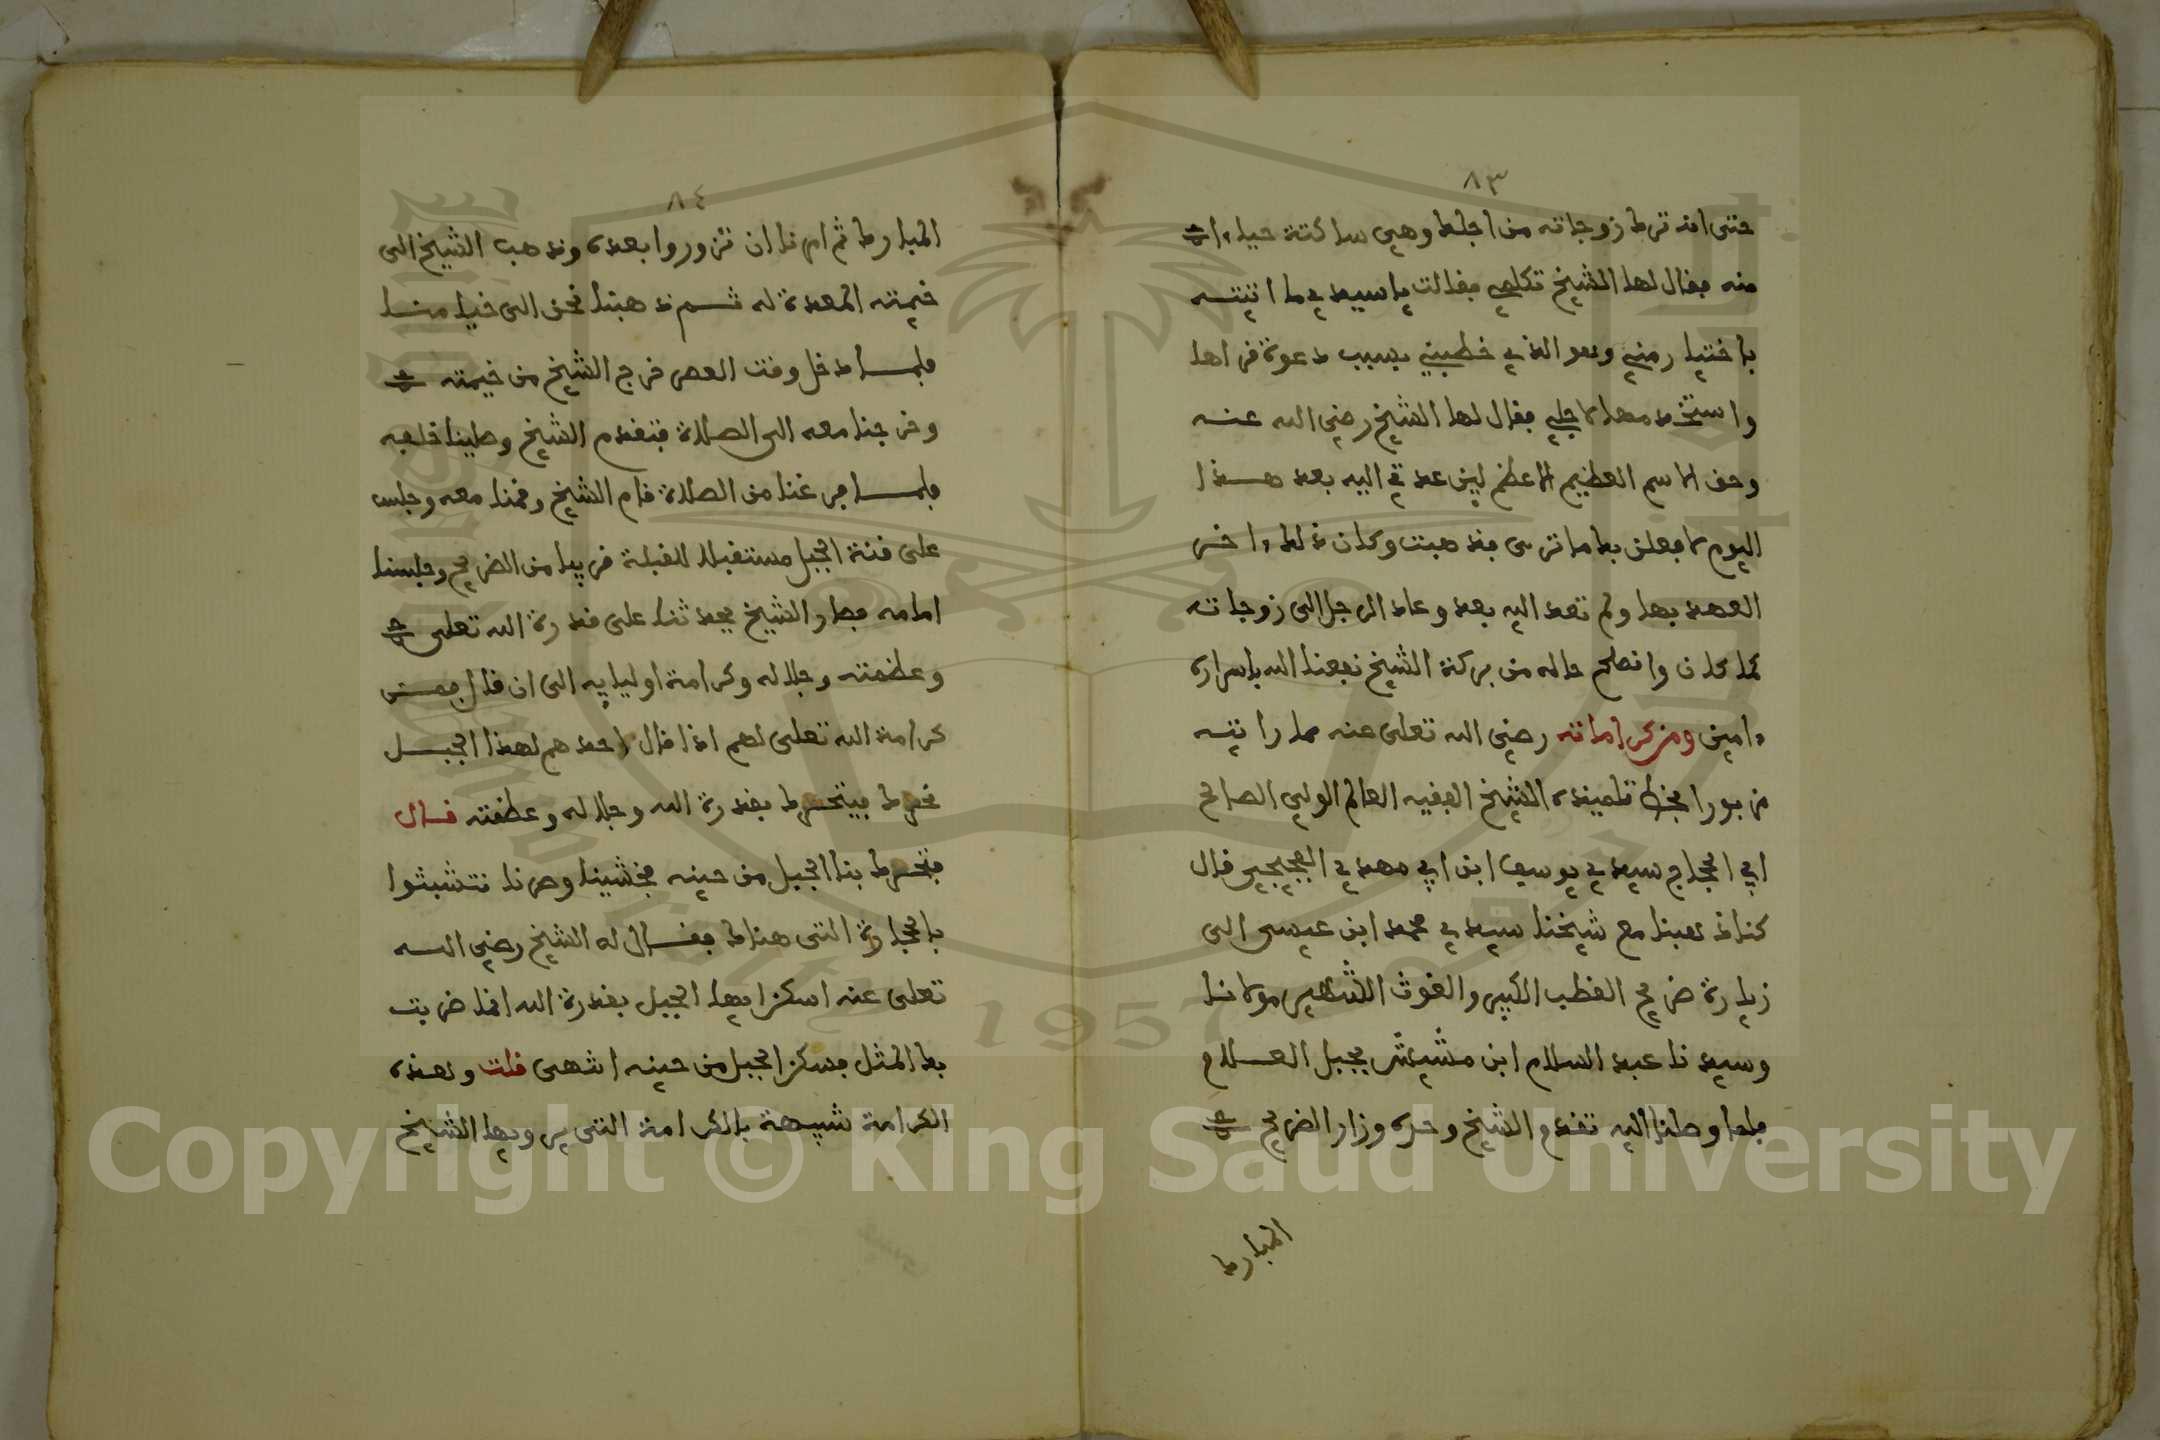 ٨٣
حتى انه ترك زوجاته من اجلك وهي ساكتة حياء
منه فقال لها الشيخ تكلمي فقالت يا سيدي ما اتيته
باختيار مني وهو الذي خطبني بسبب دعوة قراها
واستخدمها لاجلي فقال لها الشيخ رضي الله عنه
وحق الاسم العظيم الاعظم لين عدتي اليه بعد هذا
اليوم لافعلن بك ما ترى فذهبت وكان ذلك ءاخر
العهد بها ولم تعد اليه بعد وعاد الرجل الى زوجاته
كما كان وانصلح حاله من بركة الشيخ نفعنا الله باسراره
ءامين ومن كراماته رضي الله تعلى عنه مما رايته
مزبورا بخط تلميذه الشيخ الفقيه العالم الولي الصالح
ابي الحجاج سيدي يوسف ابن ابي مهدي الفجيجي قال
كنا ذهبنا مع شيخنا سيدي محمد ابن عيسى الى
زيارة ضريح القطب الكبير والغوث الشهير مولانا
وسيدنا عبد السلام ابن مشيش بجبل العلام
فلما وصلنا اليه تقدم الشيخ وحده وزار الضريح
المبارك
٨٤
المبارك ثم امرنا ان نزوروا بعده وذهب الشيخ الى
خيمته المعدة له ثم ذهبنا نحن الى خيامنا
فلما دخل وقت العصر خرج الشيخ من خيمته
وخرجنا معه الى الصلاة فتقدم الشيخ وصلينا خلفه
فلما فرغنا من الصلاة قام الشيخ وقمنا معه وجلس
على قنة الجبل مستقبلا للقبلة قريبا من الضريح وجلسنا
امامه فصار الشيخ يحدثنا على قدرة الله تعلى
وعظمته وجلاله وكرامة اوليايه الى ان قال فمن
كرامة الله تعلى لهم اذا قال احدهم لهذا الجبل
تحرك فيتحرك بقدرة الله وجلاله وعظمته قال
فتحرك بنا الجبل من حينه فخشينا وصرنا نتشبثوا
بالحجارة التى هناك فقال له الشيخ رضي الله
تعلى عنه اسكن ايها الجبل بقدرة الله انما ضربت
بك المثل فسكن الجبل من حينه انتهى قلت وهذه
الكرامة شبيهة بالكرامة التى يرويها الشيخ
Copyright © King Saud University
1957